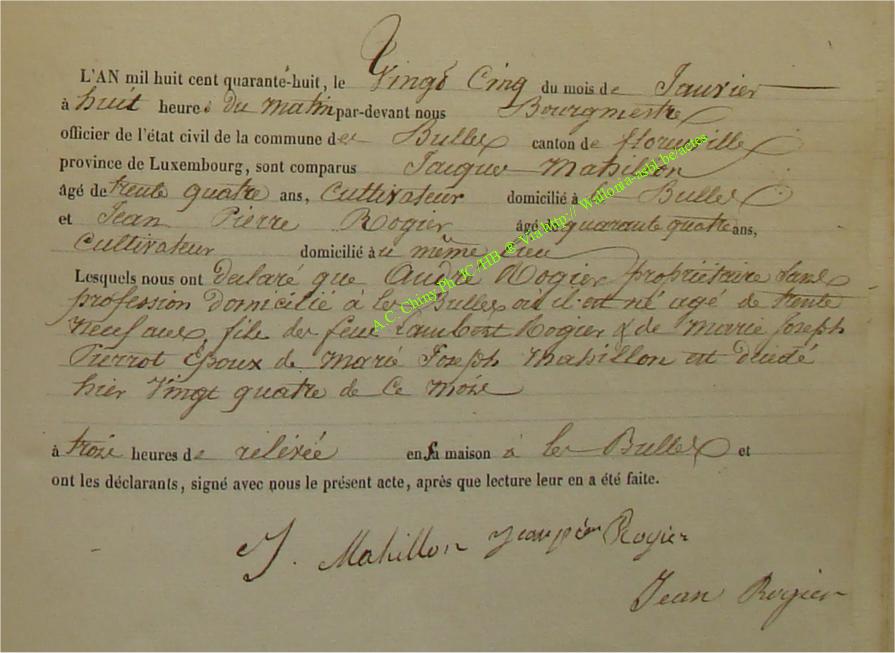 L'AN mil huit cent quarante-huit, le Vingt Cinq du mois de Janvier
à huit heures du matin par-devant nous Bourgmestre
officier de l'état civil de la commune des Bulles canton de florenville
province de Luxembourg, sont comparus Jacques Mahillon
âgé de trente quatre ans, Cultivateur domicilié à Bulles
et Jean Pierre Rogier âgé de quarante quatre ans,
Cultivateur domicilié au même lieu
Lesquels nous ont declaré que André Rogier propriétaire sans
profession domicilié à les Bulles ou il est né agé de trente
neuf ans, fils de feu Lambert Rogier & de Marie Joseph
Pierrot Époux de Marie Joseph Mahillon est décédé
hier Vingt quatre de ce mois
à trois heures de relévée en sa maison à les Bulles et
ont les déclarants, signé avec nous le présent acte, après que lecture leur en a été faite.
J. Mahillon Jean pier Rogier
Jean Rogier
A.C. Chiny Ph JC /HB @ Via http:// Wallonia-asbl.be/actes